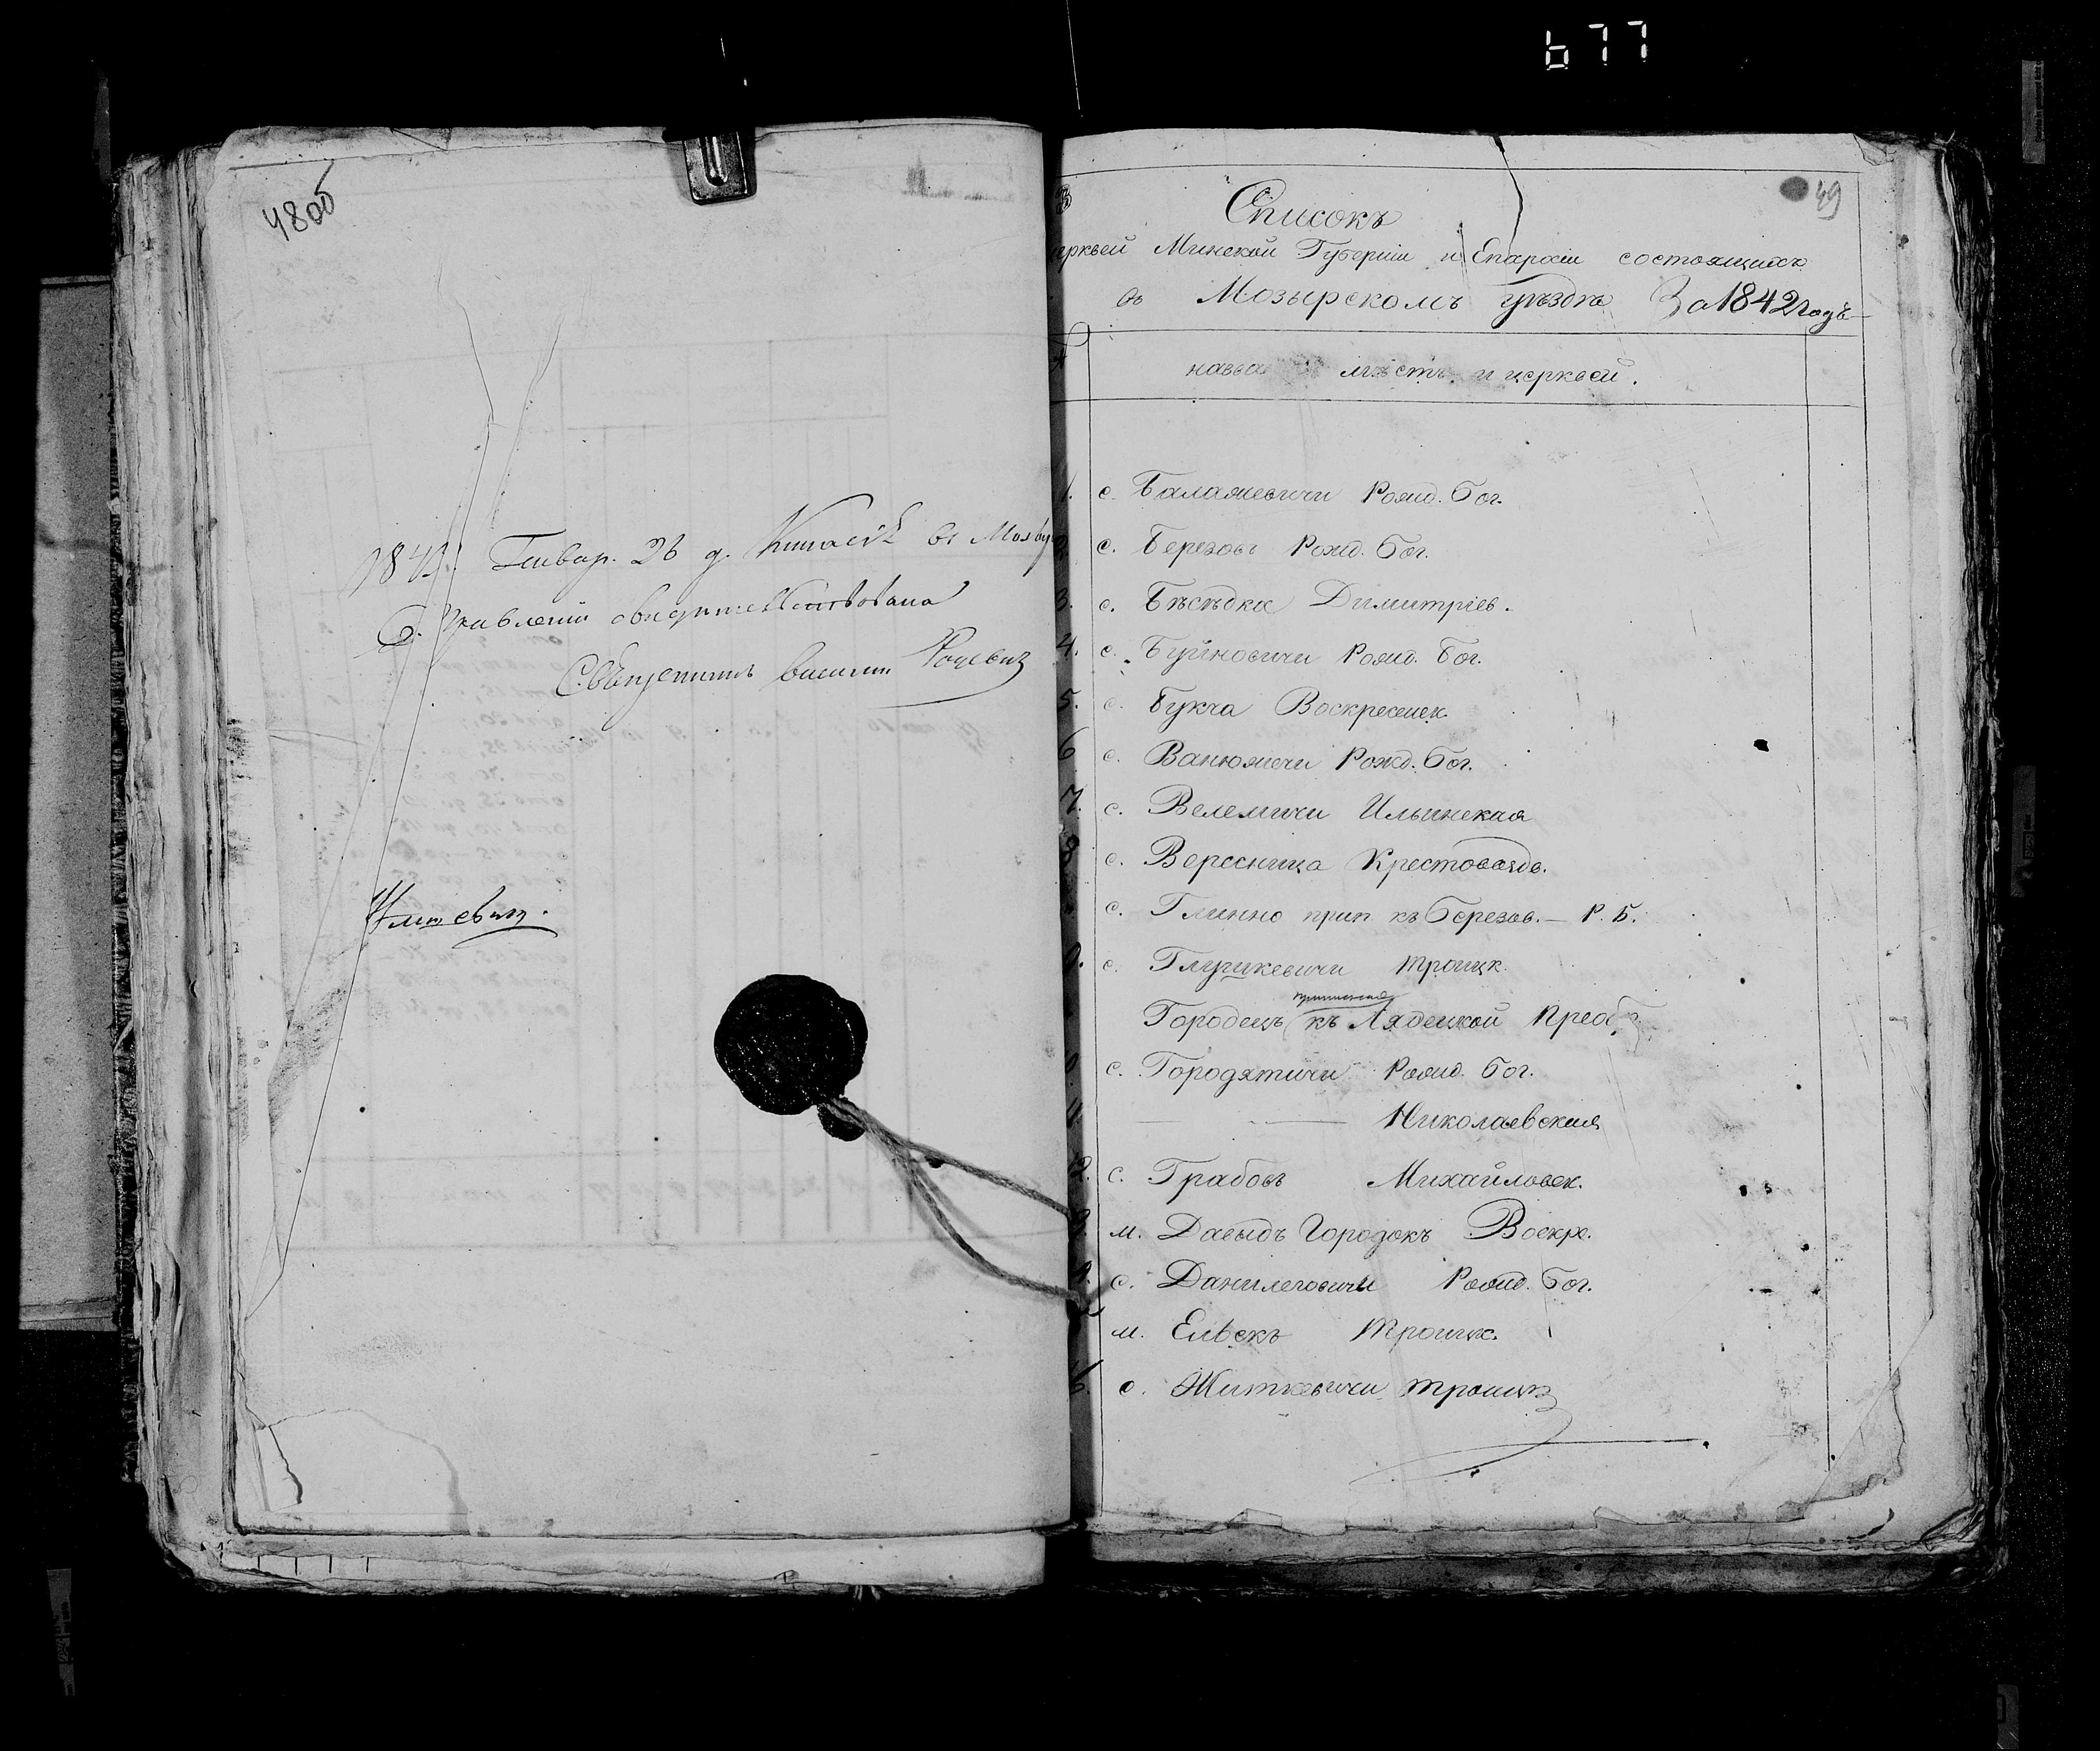 677
48об
1843 Генвар. 26 д. Книга сія въ Мозыр
Д. Правленіи свидетельствована
Священникъ Василій
49
Списокъ
церквей Минской Губерніи и Епархіи состоящихъ
въ Мозырскомъ уѣздѣ За 1842 годъ
назва мѣстъ и церквей.
1. с. Балажевичи Рожд. Бог.
с. Березовъ Рожд. Бог.
3. с. Бѣсѣдка Димитріев.
4. с. Буйновичи Рожд. Бог.
5. с. Букча Воскресенск.
6 с. Ванюжичи Рожд. Бог.
7. с. Велемичи Ильинская
8 с. Вересница Крестовоздв.
с. Глинно прип. къ Березов. — Р. Б.
9. с. Глушкевичи Троицк.
приписная
Городецъ (къ Лядецкой Преоб.)
0 с. Городятичи Рожд. Бог.
— — Николаевская
2. с. Грабовъ Михайловск.
3. м. Давыдъ Городокъ Воскре.
4. с. Данилеговичи Рожд. Бог.
м. Ельскъ Троицк.
6. с. Житкевичи Троицк